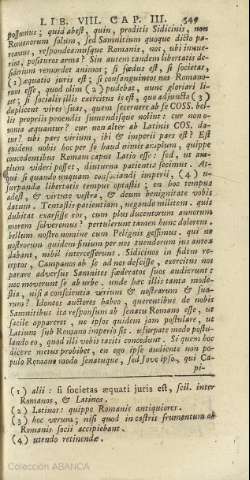 LIB. VIII. CAP. III. 549
possumus: quid abest, quin, proditis Sidicinis, non
Romanorum solum, sed Samnitium quoque dicto pa-
reamus, respondeamusque Romanis, nos, ubi innue-
rint, posituros arma? Sin autem tandem libertatis de-
siderium remordet animos; si fœdus est, si societas,
(1) æquatio juris est; si consanguineos nos Romano-
rum esse, quod olim (2) pudebat, nunc gloriari li-
cet; si socialis illis exercitus is est, quo adjuncto (3)
duplicent vires suas, quem secernere ab se COSS. bel-
lis propriis ponendis sumendisque nolint: cur non o-
mnia æquantur? cur non alter ab Latinis COS. da-
tur? ubi pars virium, ibi & imperii pars est? Est
quidem nobis hoc per se haud nimis amplum, quippe
concedentibus Romam caput Latio esse: sed, ut am-
plum videri posset, diuturna patientia fecimus. At-
qui si quando unquam consociandi imperii, (4) u-
surpandæ libertatis tempus optastis; en hoc tempus
adest, & virtute vestra, & deum benignitate vobis
datum. Tentastis patientiam, negando militem. quis
dubitat exarsisse eos, cum plus ducentorum annorum
morem solveremus? pertulerunt tamen hunc dolorem.
bellum nostro nomine cum Pelignis gessimus. qui ne
nostrorum quidem finium per nos tuendorum jus antea
dabant, nihil intercesserunt. Sidicinos in fidem re-
ceptos, Campanos ab se ad nos descisse, exercitus nos
parare adversus Samnites fœderatos suos audierunt:
nec moverunt se ab urbe. unde hæc illis tanta mode-
stia, nisi a conscientia virium & nostrarum & sua-
rum? Idoneos auctores habeo, querentibus de nobis
Samnitibus ita responsum ab senatu Romano esse, ut
facile appareret, ne ipsos quidem jam postulare, ut
Latium sub Romano imperio sit. usurpate modo postu-
lando eo, quod illi vobis taciti concedunt. Si quem hoc
dicere metus prohibet, en ego ipse audiente non po-
pulo Romano modo senatuque, sed Jove ipso, qui Ca-
pi-
(1) alii: si societas æquati juris est, scil. inter
Romanos, & Latinos.
(2) Latinos: quippe Romanis antiquiores.
(3) hoc verum; nisi quod in castris frumentum ab
Romanis socii accipiebant.
(4) utendo retinendæ.
Colección ABANCA